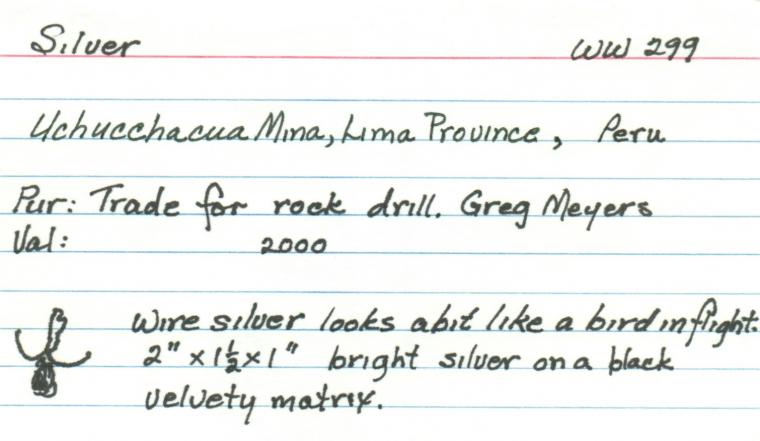 Silver WW 299
Uchucchacua Mina, Lima Province, Peru
Pur: Trade for rock drill. Greg Meyers
Val: 2000
Wire silver looks abit like a bird in flight.
2" x 1½ x 1" bright silver on a black
velvety matrix.